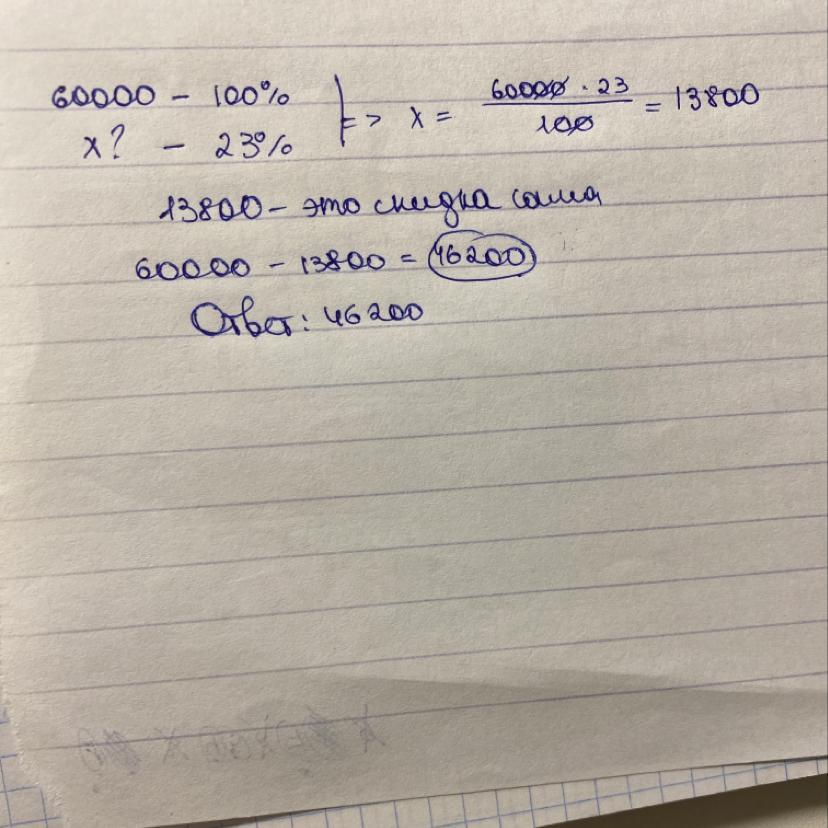 60000 - 100% | => x = 60000 · 23 / 100 = 13800
x? - 23%
13800 - это скидка сама
60000 - 13800 = 46200
Ответ: 46200